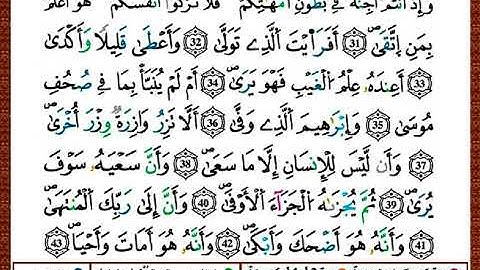 وَإِذْ أَنتُمْ أَجِنَّةٌ فِي بُطُونِ أُمَّهَٰتِكُمْ فَلَا تُزَكُّوٓاْ أَنفُسَكُمْ هُوَ أَعْلَمُ
بِمَنِ اِتَّقَىٰٓ 31 أَفَرَأَيْتَ اَلَّذِي تَوَلَّىٰ 32 وَأَعْطَىٰ قَلِيلًا وَأَكْدَىٰٓ
33 أَعِندَهُۥ عِلْمُ اُلْغَيْبِ فَهُوَ يَرَىٰٓ 34 أَمْ لَمْ يُنَبَّأْ بِمَا فِي صُحُفِ
مُوسَىٰ 35 وَإِبْرَٰهِيمَ اَلَّذِي وَفَّىٰٓ 36 أَلَّا تَزِرُ وَازِرَةٌ وِزْرَ أُخْرَىٰ
37 وَأَن لَّيْسَ لِلْإِنسَٰنِ إِلَّا مَا سَعَىٰ 38 وَأَنَّ سَعْيَهُۥ سَوْفَ
يُرَىٰ 39 ثُمَّ يُجْزَىٰهُ اُلْجَزَآءَ اَلْأَوْفَىٰ 40 وَأَنَّ إِلَىٰ رَبِّكَ اَلْمُنتَهَىٰ
41 وَأَنَّهُۥ هُوَ أَضْحَكَ وَأَبْكَىٰ 42 وَأَنَّهُۥ هُوَ أَمَاتَ وَأَحْيَا 43